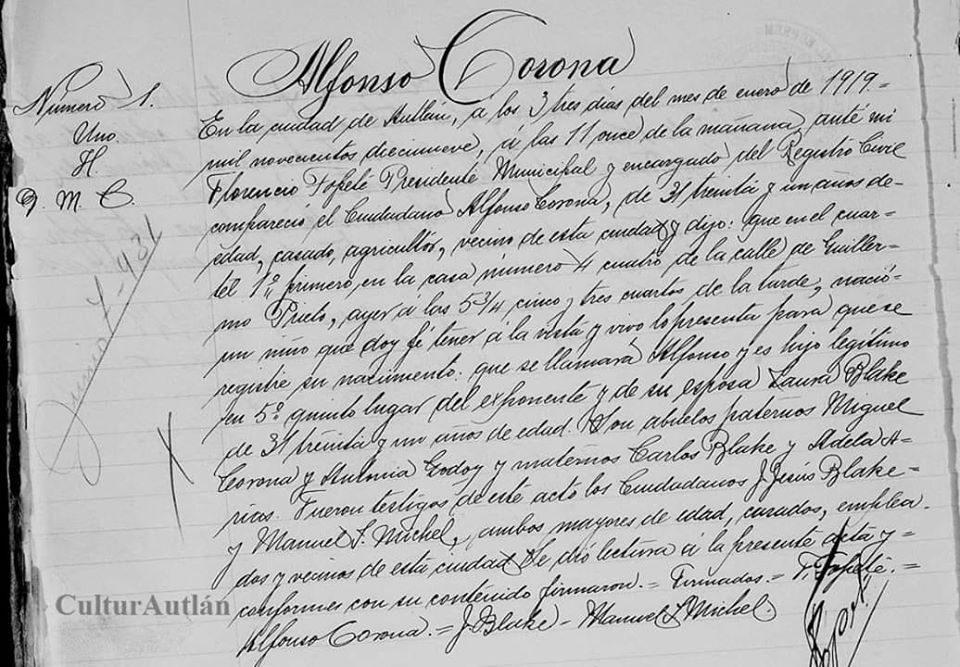 Alfonso Corona
Número 1.
Uno.
H.
D. M. C.
Junio 7-931
En la ciudad de Autlán, a los 3 tres dias del mes de enero de 1919.=
mil novecientos diecinueve, á las 11 once de la mañana, anté mi
Florencio Topete Presidenté Municipal y encargado del Registro Civil
compareció el Ciudadano Alfonso Corona, de 31 treinta y un años de-
edad, casado, agricultor, vecino de esta ciudad y dijo: que en el cuar-
tel 1º primero, en la casa número 4 cuatro de la calle de Guiller-
mo Prieto, ayer á las 5 3/4 cinco y tres cuartos de la tarde, nació-
un niño que doy fé tener á la vista y vivo lo presenta para que se
registre su nacimiento: que se llamará Alfonso y es hijo legítimo
en 5º quinto lugar del exponente y de su esposa Laura Blake
de 31 treinta y un años de edad. Son abuelos paternos Miguel
Corona y Antonia Godoy y maternos Carlos Blake y Adela A-
ricos. Fueron testigos de este acto los Ciudadanos J. Jesús Blake-
y Manuel S. Michel, ambos mayores de edad, casados, emplea-
dos y vecinos de esta ciudad. Se dió lectura á la presente acta y-
conformes con su contenido firmaron.= Firmados.= F. Topeté.=
Alfonso Corona.= J. Blake- Manuel S. Michel
CulturAutlán